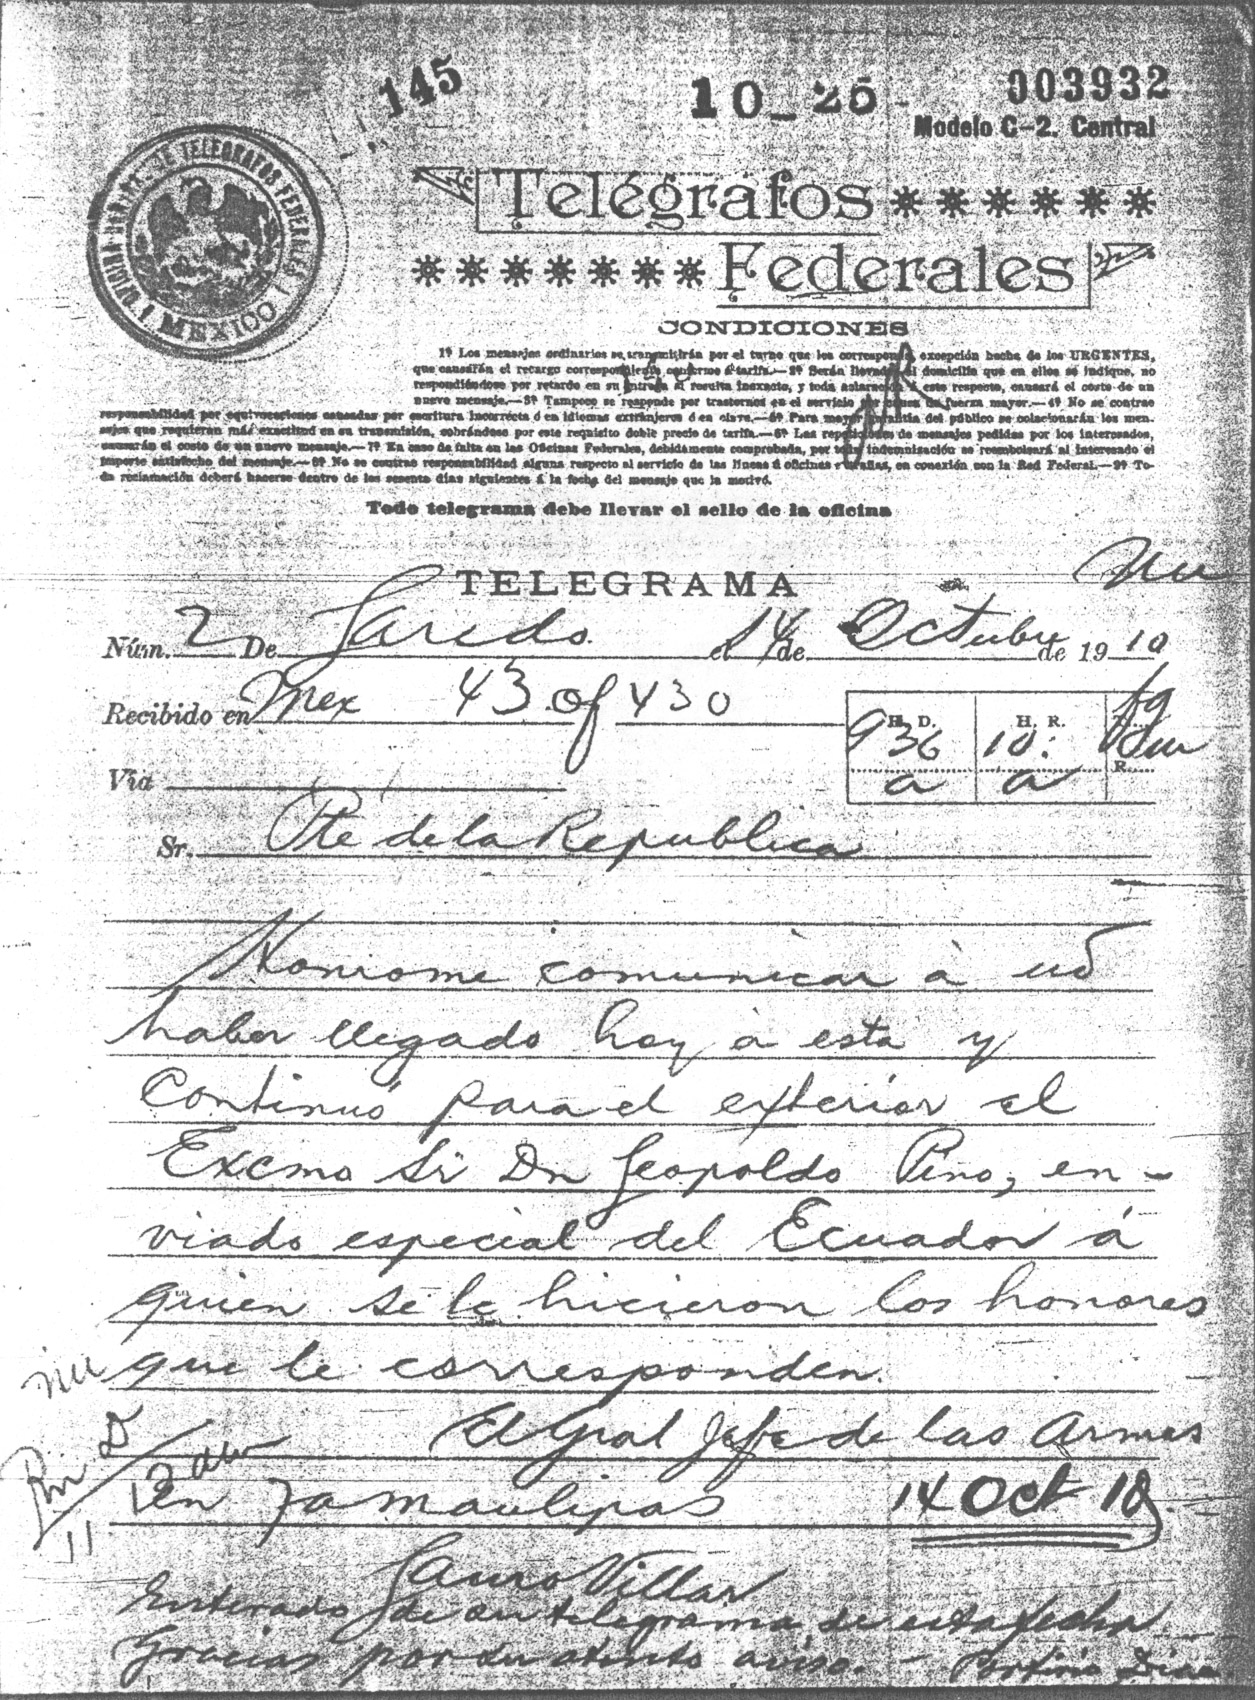 145
10_25
003932
Modelo C-2. Central
MEXICO
Telégrafos
Federales
CONDICIONES
1ª Los mensajes ordinarios se transmitirán por el turno que les corresponda excepción hecha de los URGENTES,
que causarán el recargo correspondiente conforme á tarifa.—2ª Serán llevados al domicilio que en ellos se indique, no
respondiéndose por retardo en su entrega si resulta inexacto, y toda aclaración á este respecto, causará el costo de un
nuevo mensaje.—3ª Tampoco se responde por trastornos en el servicio por causa de fuerza mayor.—4ª No se contrae
responsabilidad por equivocaciones causadas por escritura incorrecta ó en idiomas extranjeros ó en clave.—5ª Para mayor garantía del público se colacionarán los men-
sajes que requieran más exactitud en su transmisión, cobrándose por este requisito doble precio de tarifa.—6ª Las repeticiones de mensajes pedidas por los interesados,
causarán el costo de un nuevo mensaje.—7ª En caso de falta en las Oficinas Federales, debidamente comprobada, por toda indemnización se reembolsará al interesado el
importe satisfecho del mensaje.—8ª No se contrae responsabilidad alguna respecto al servicio de las líneas ú oficinas extrañas, en conexión con la Red Federal.—9ª To-
da reclamación deberá hacerse dentro de los sesenta días siguientes á la fecha del mensaje que la motivó.
Todo telegrama debe llevar el sello de la oficina
TELEGRAMA
Núm. 2 De Laredo el 14 de Octubre de 1910
Recibido en Mex 43 of 430
H. D. H. R.
936 10:
a a
R.
Vía
Sr. Pte de la Republica
Honrome comunicar à ud
haber llegado hoy à esta y
continuó para el exterior el
Excmo Sr Dn Leopoldo Pino, en-
viado especial del Ecuador á
quien se le hicieron los honores
que le corresponden.
El Gral Jefe de las Armas
en Tamaulipas 14 Oct 10
Lauro Villar
Enterado de su telegrama de esta fecha
Gracias por su atento aviso.- Porfirio Diaz